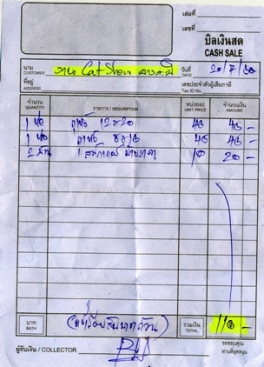 เล่มที่
เลขที่
บิลเงินสด
CASH SALE
นาม
CUSTOMER งาน Cat Show
วันที่
DATE 20/7/60
ที่อยู่
ADDRESS
เลขประจำตัวผู้เสียภาษี
Tax ID No.
จำนวน
QUANTITY
รายการ / DESCRIPTION
หน่วยละ
UNIT PRICE
จำนวนเงิน
AMOUNT
1 ห่อ 12x20 45 45 -
1 ห่อ 8x16 45 45 -
2 10 20 -
บาท
BAHT
(หนึ่งร้อยสิบบาทถ้วน)
รวมเงิน
TOTAL 110 -
ผู้รับเงิน / COLLECTOR
ขอขอบคุณ
ท่านที่อุดหนุน